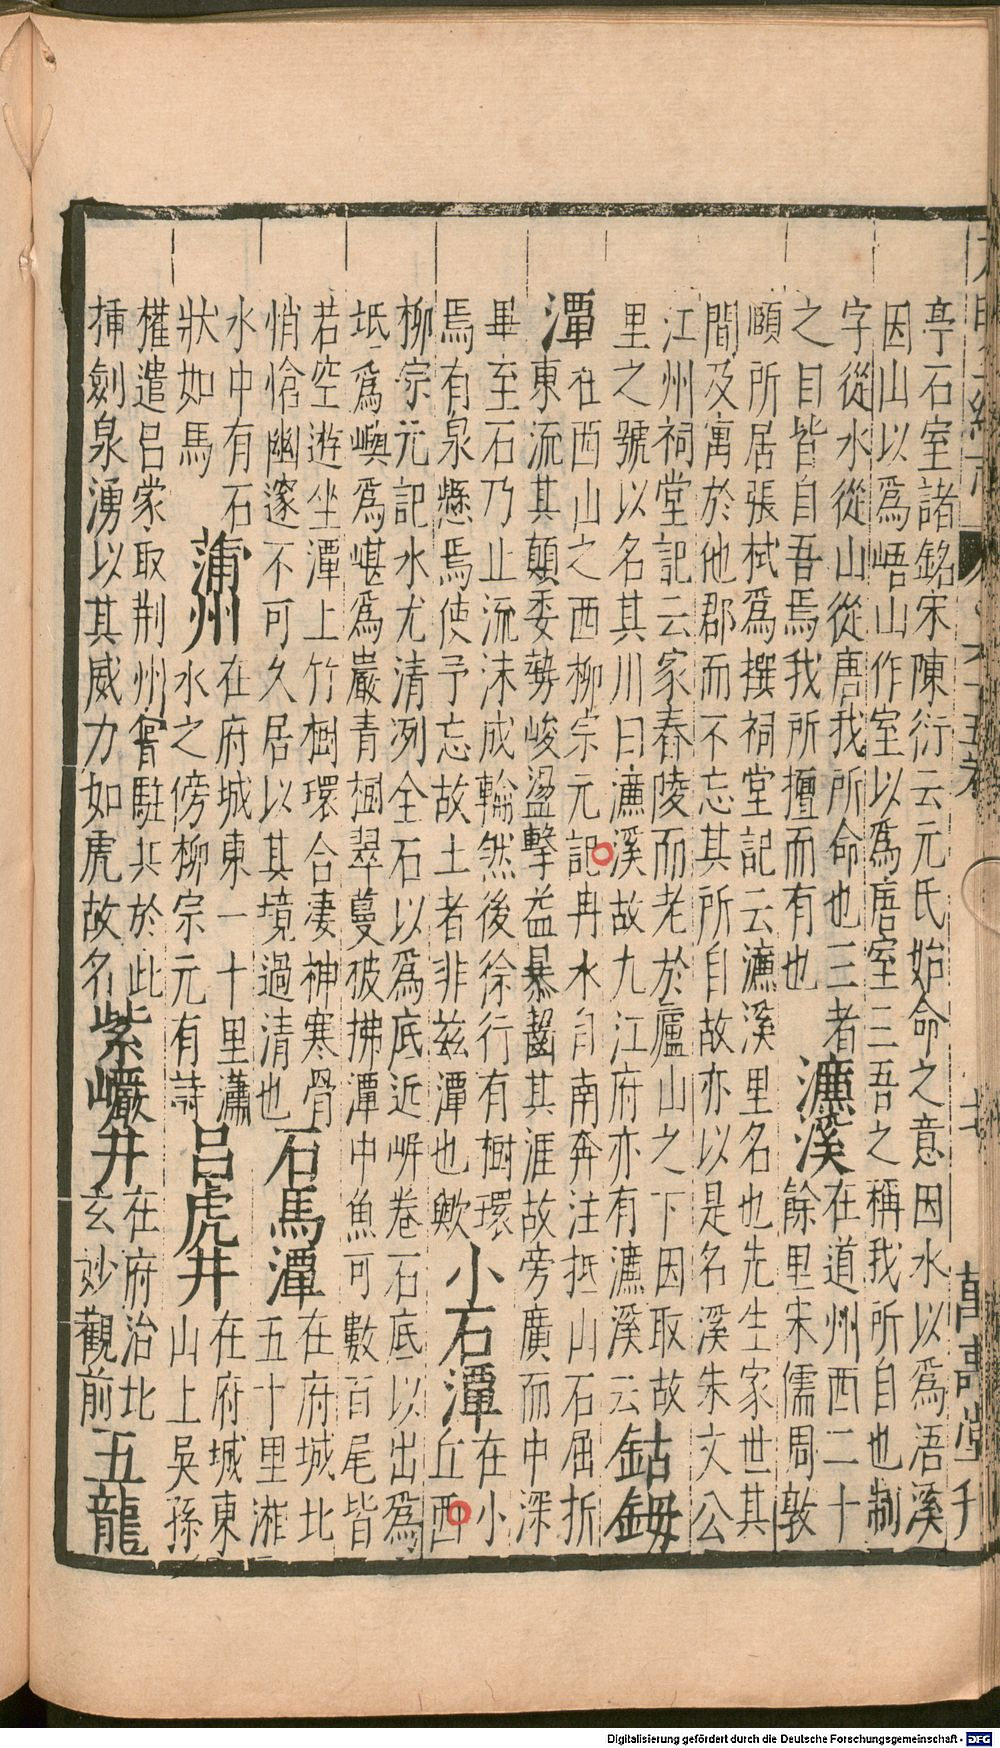 大明一統志 卷六十五 萬壽堂刊
亭石室諸銘宋陳衍云元氏始命之意因水以爲浯溪
因山以爲峿山作室以爲唐室三吾之稱我所自也制
字從水從山從唐我所命也三者
之目皆自吾焉我所擅而有也
濂溪
在道州西二十
餘里宋儒周敦
頤所居張栻爲撰祠堂記云濂溪里名也先生家世其
間及寓於他郡而不忘其所自故亦以是名溪朱文公
江州祠堂記云家舂陵而老於廬山之下因取故
里之號以名其川曰濂溪故九江府亦有濂溪云
鈷鉧
潭
在西山之西柳宗元記冉水自南奔注抵山石屈折
東流其顛委勢峻盪擊益暴齧其涯故旁廣而中深
畢至石乃止流沫成輪然後徐行有樹環
焉有泉懸焉使予忘故土者非兹潭也歟
小石潭
在小
丘西
柳宗元記水尤清冽全石以爲底近岸卷石底以出爲
坻爲嶼爲嵁爲巖青樹翠蔓披拂潭中魚可數百尾皆
若空遊坐潭上竹樹環合凄神寒骨
悄愴幽邃不可久居以其境過清也
石馬潭
在府城北
五十里湘
水中有石
狀如馬
蒲州
在府城東一十里瀟
水之傍柳宗元有詩
呂虎井
在府城東
山上吳孫
權遣呂蒙取荆州嘗駐兵於此
揷劍泉湧以其威力如虎故名
紫巖井
在府治北
玄妙觀前
五龍
Digitalisierung gefördert durch die Deutsche Forschungsgemeinschaft - DFG